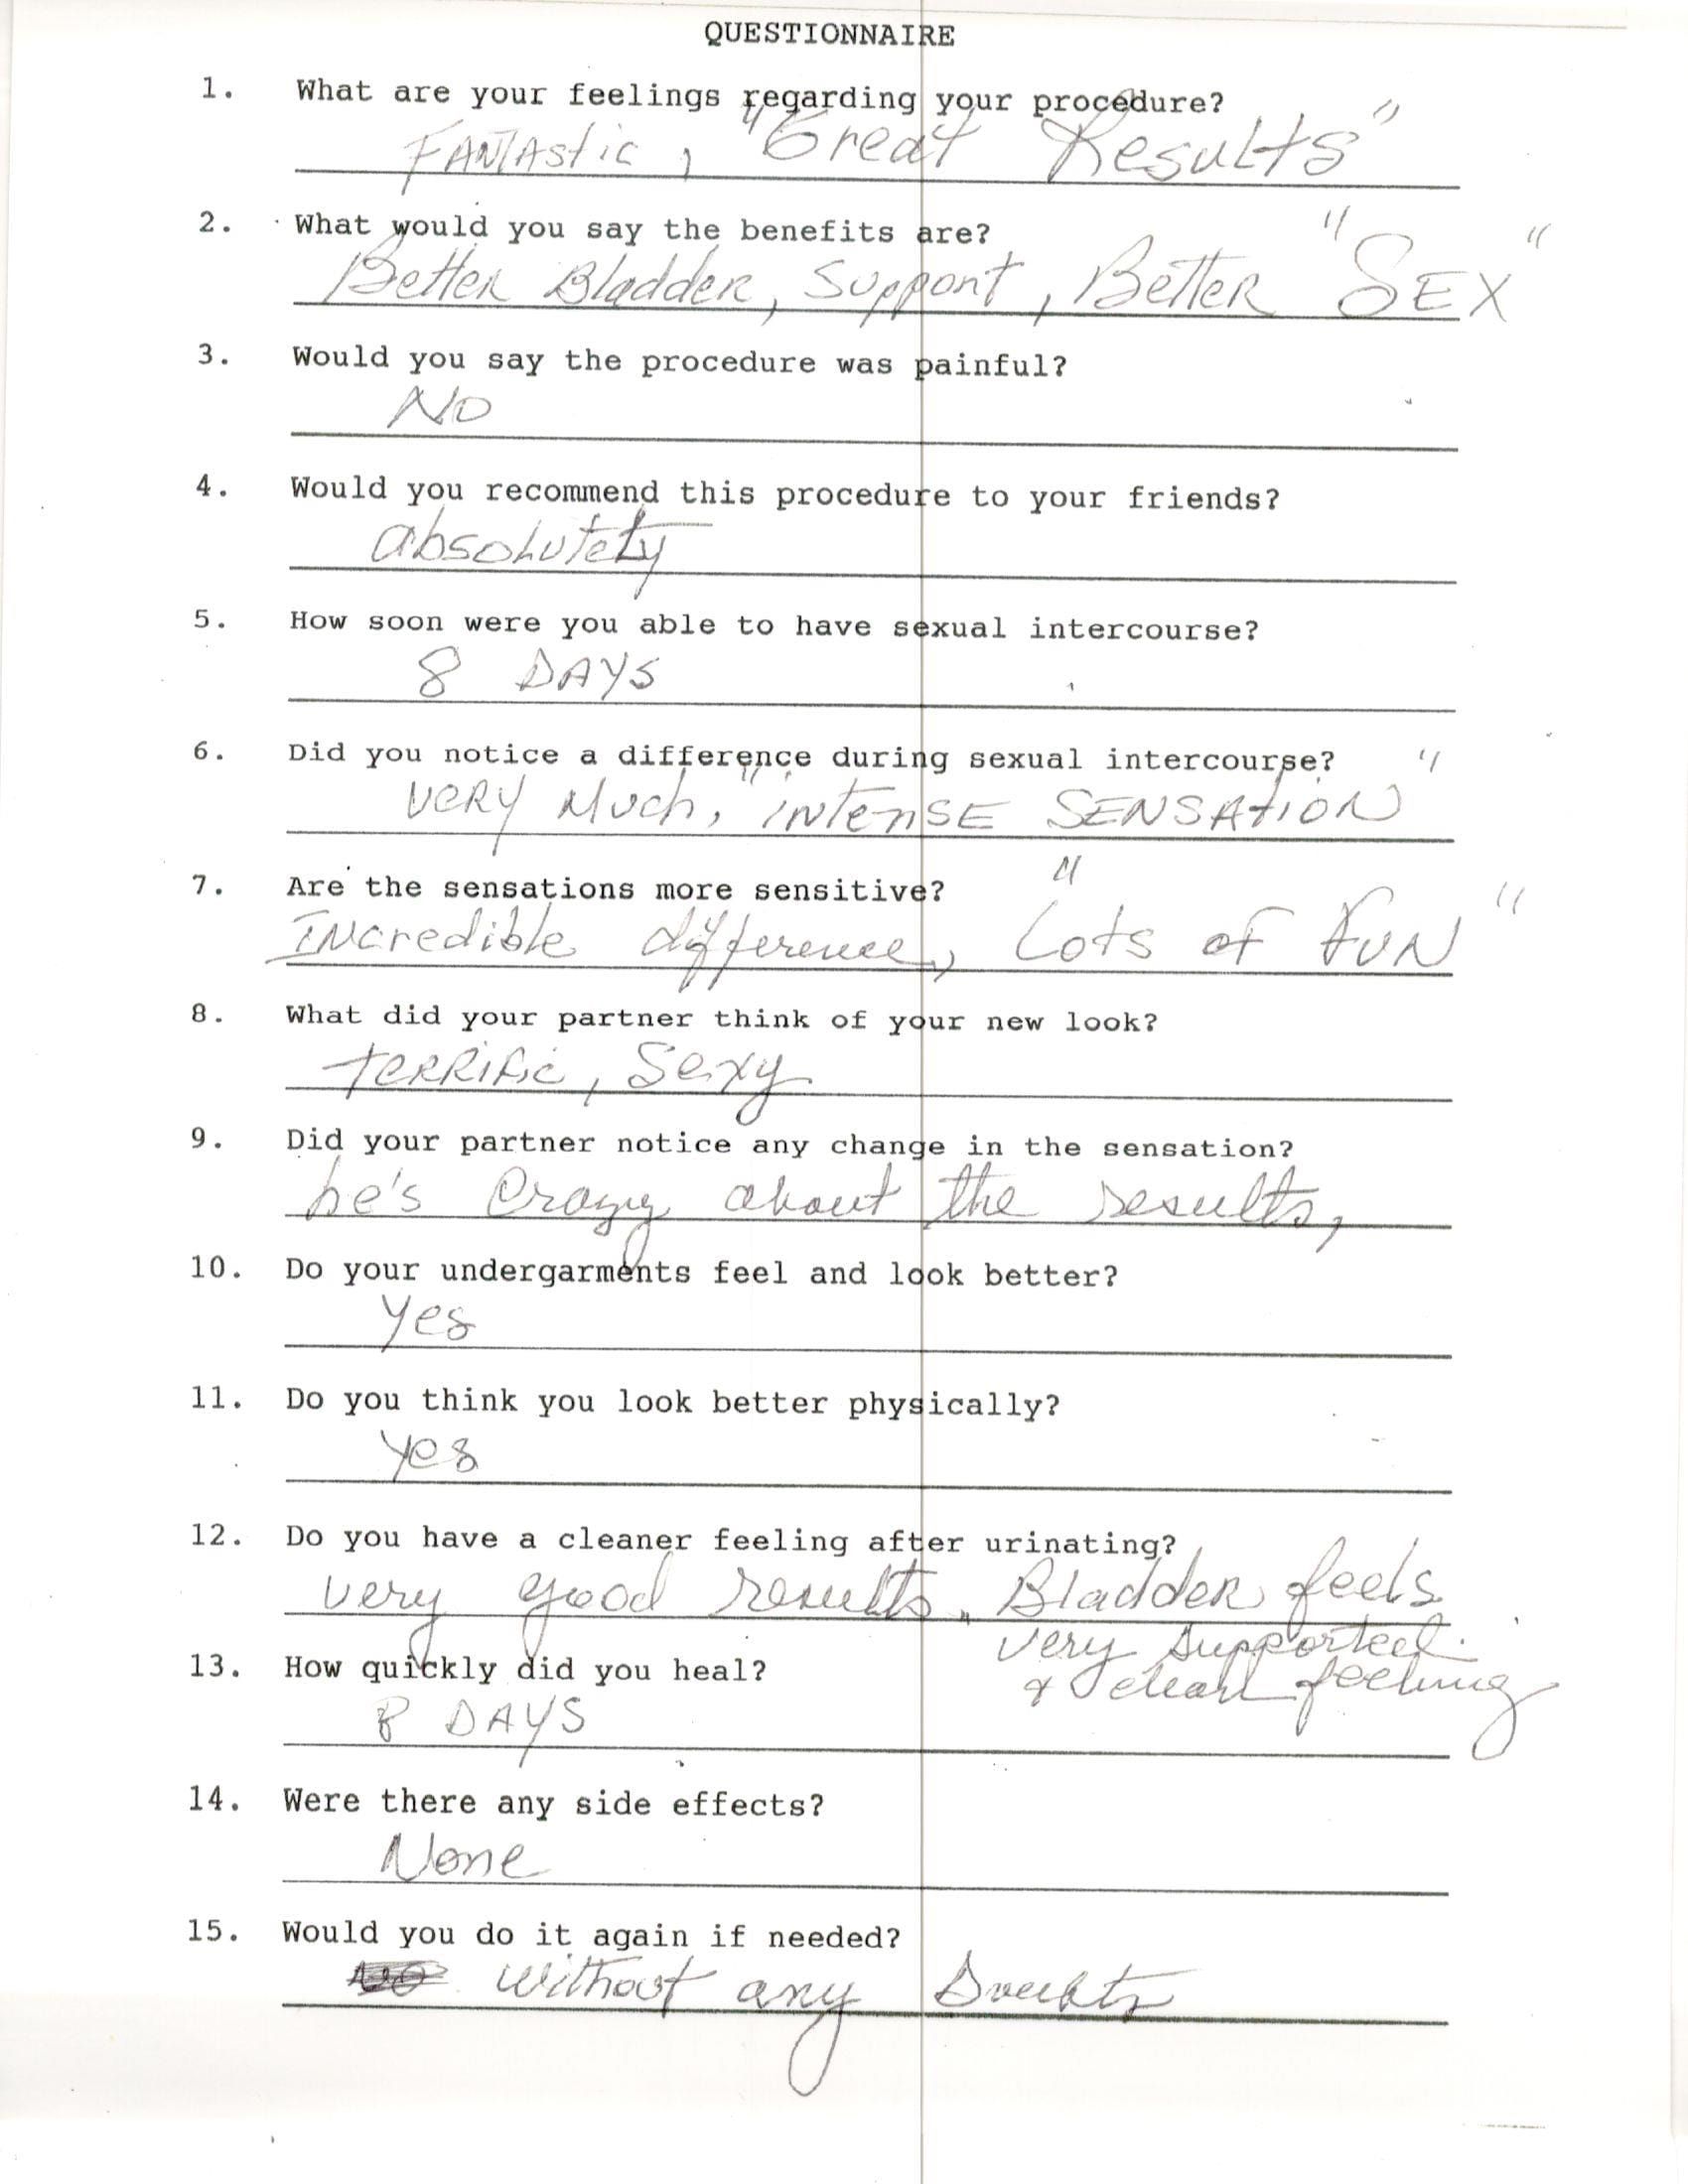 QUESTIONNAIRE
1. What are your feelings regarding your procedure?
FANTAStic, "Great Results"
2. What would you say the benefits are?
Better Bladder, Support, Better "SEX"
3. Would you say the procedure was painful?
NO
4. Would you recommend this procedure to your friends?
absolutely
5. How soon were you able to have sexual intercourse?
8 DAYS
6. Did you notice a difference during sexual intercourse?
VERY Much, "intENSE SENSAtiON"
7. Are the sensations more sensitive?
INcredible difference, "Lots of FUN"
8. What did your partner think of your new look?
tERRiFic, Sexy
9. Did your partner notice any change in the sensation?
he's Crazy about the results,
10. Do your undergarments feel and look better?
Yes
11. Do you think you look better physically?
Yes
12. Do you have a cleaner feeling after urinating?
very good results. Bladder feels
very supported.
& clean feeling
13. How quickly did you heal?
8 DAYS
14. Were there any side effects?
None
15. Would you do it again if needed?
without any Doubts